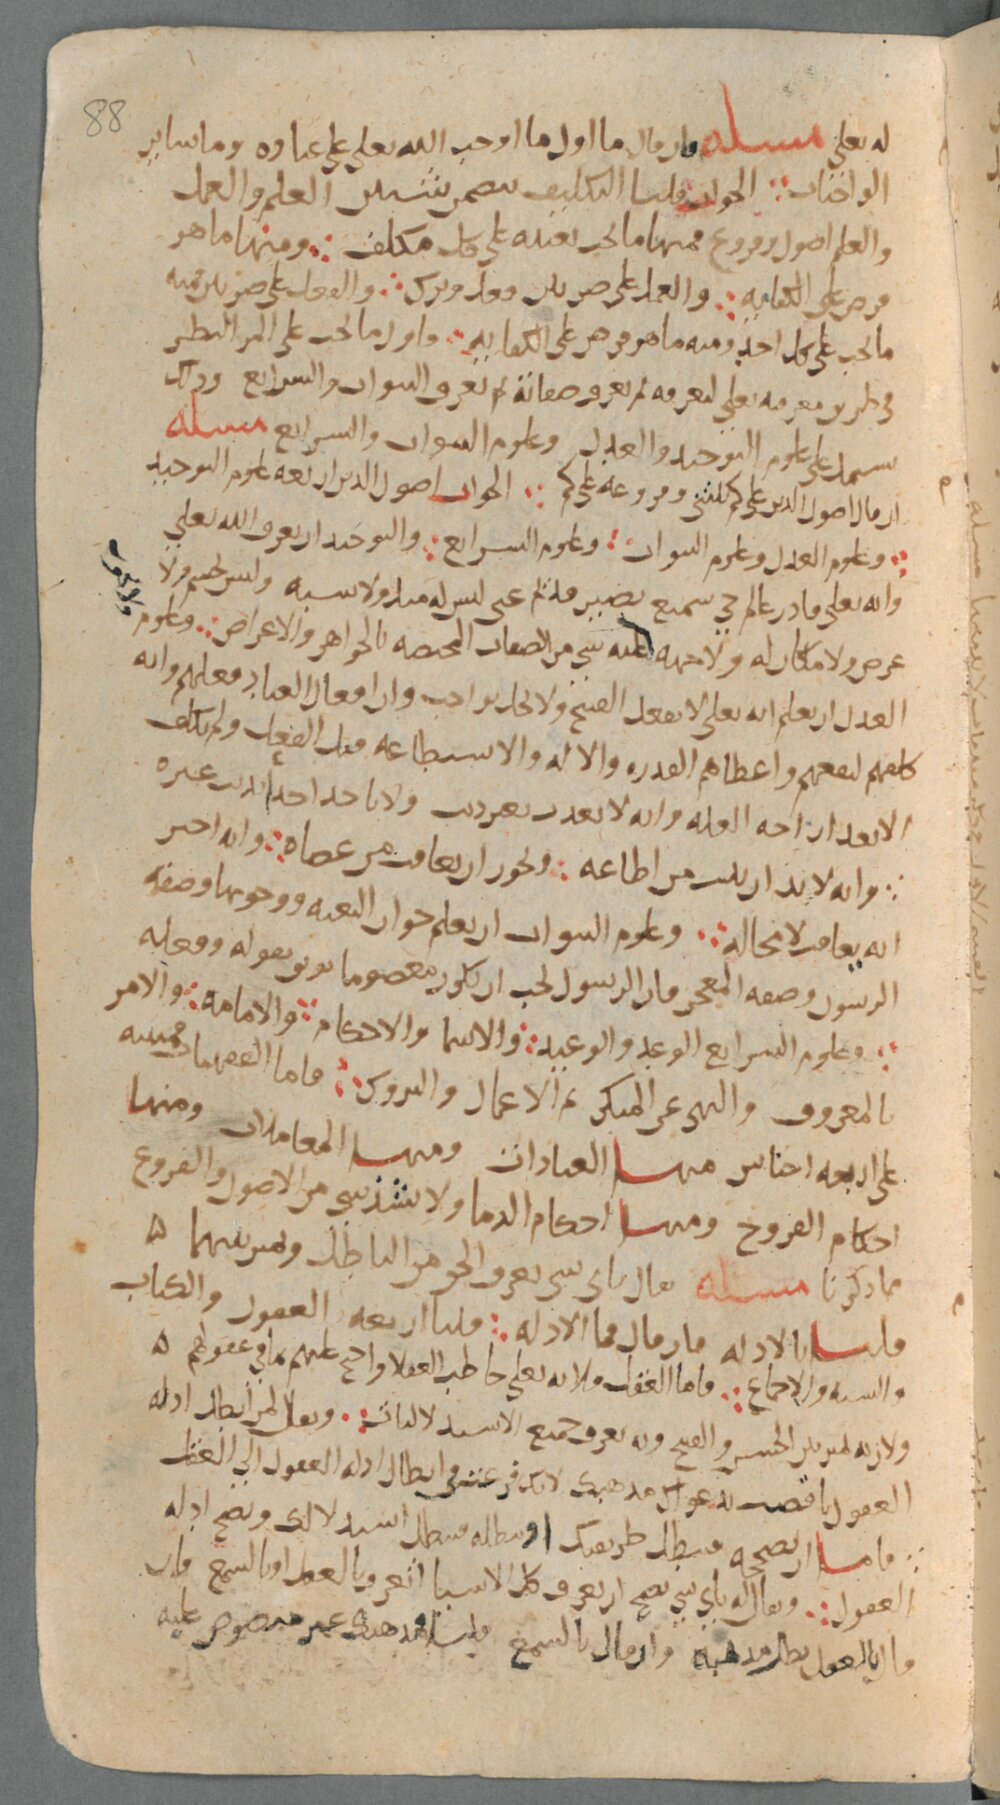 88
له تعلى مسله فان قال ما اول ما اوجب الله تعلى على عباده وما ساير
الواجبات ∴ الجواب قلنا التكليف يتضمن شيئين العلم والعمل
والعلم اصول وفروع فمنها ما يجب تعينه على كل مكلف ∴ ومنها ما هو
فرض على الكفايه ∴ والعمل على ضربين فعل وترك ∴ والفعل على ضربين منه
ما يجب على كل احد ومنه ما هو فرض على الكفايه ∴ واول ما يجب على المر النظر
في طريق معرفه تعلى ليعرفه ثم يعرف صفاته ثم يعرف النبوات والشرايع وذلك
يشتمل على علوم التوحيد والعدل وعلوم النبوات والشرايع مسله
ان قال اصول الدين على كم تبتنى وفروعه على كم ∴ الجواب اصول الدين اربعه علوم التوحيد
∴ وعلوم العدل وعلوم النبوات ∴ وعلوم الشرايع ∴ والتوحيد ان يعرف الله تعلى
وانه تعلى قادر عالم حي سميع بصير قديم غنى ليس له مثل ولا شبه وليس بجسم ولا
عرض ولا مكان له ولا جهه عليه شي من الصفات المختصه بالجواهر والاعراض ∴ وعلوم
ولا يجوز
العدل ان يعلم انه تعلى لا يفعل القبيح ولا يخل بواجب وان افعال العباد فعلهم وانه
كلفهم لنفعهم واعطاهم القدره والاله والاستطاعه قبل الفعل ولم يكلف
الا بعد ازاحه العله وانه لا يعذب بغير ذنب ولا ياخذ احدا بذنب غيره
∴ وانه لا بد ان يثيب من اطاعه ∴ ويجوز ان يعاقب من عصاه ∴ وانه اخبر
انه يعاقب لا محاله ∴ وعلوم النبوات ان يعلم جواز البعثه ووجوبها وصفه
الرسول وصفه المعجز وان الرسول يجب ان يكون معصوما يوثق بقوله وفعله
∴ وعلوم الشرايع الوعد والوعيد ∴ والاسما والاحكام ∴ والامامه ∴ والامر
بالمعروف والنهى عن المنكر ثم الاعمال والتروك ∴ فاما الفقهيات فمبنيه
على اربعه اجناس منها العبادات ومنها المعاملات ومنها
احكام الفروج ومنها احكام الدما ولا يشذ شي من الاصول والفروع
مما ذكرنا مسئله يقال باى شى يعرف الحق من الباطل ويميز بينهما ه
قلنا بالادله فان قال فما الادله ∴ قلنا اربعه العقول والكتاب
والسنه والاجماع ∴ فاما العقل فلانه تعلى خاطب العقلا واحتج عليهم بما في عقولهم ه
ولان به يميز بين الحسن والقبيح وبه يعرف جميع الاستدلالات ∴ ويقال لمن ابطل ادله
العقول ناقضت بدعواك مذهبك لانك فزعت في ابطال ادله العقول الى العقل
∴ فاما ان تصححه فتبطل طريقتك او تبطله فتبطل استدلالك وتصح ادله
العقول ∴ ويقال له باى شي يصح ان يعرف كل الاشيا اتعرف بالعقل او بالسمع فان
قال بالعقل بطل مذهبه وان قال بالسمع قلنا مذهبك غير منصوص عليه